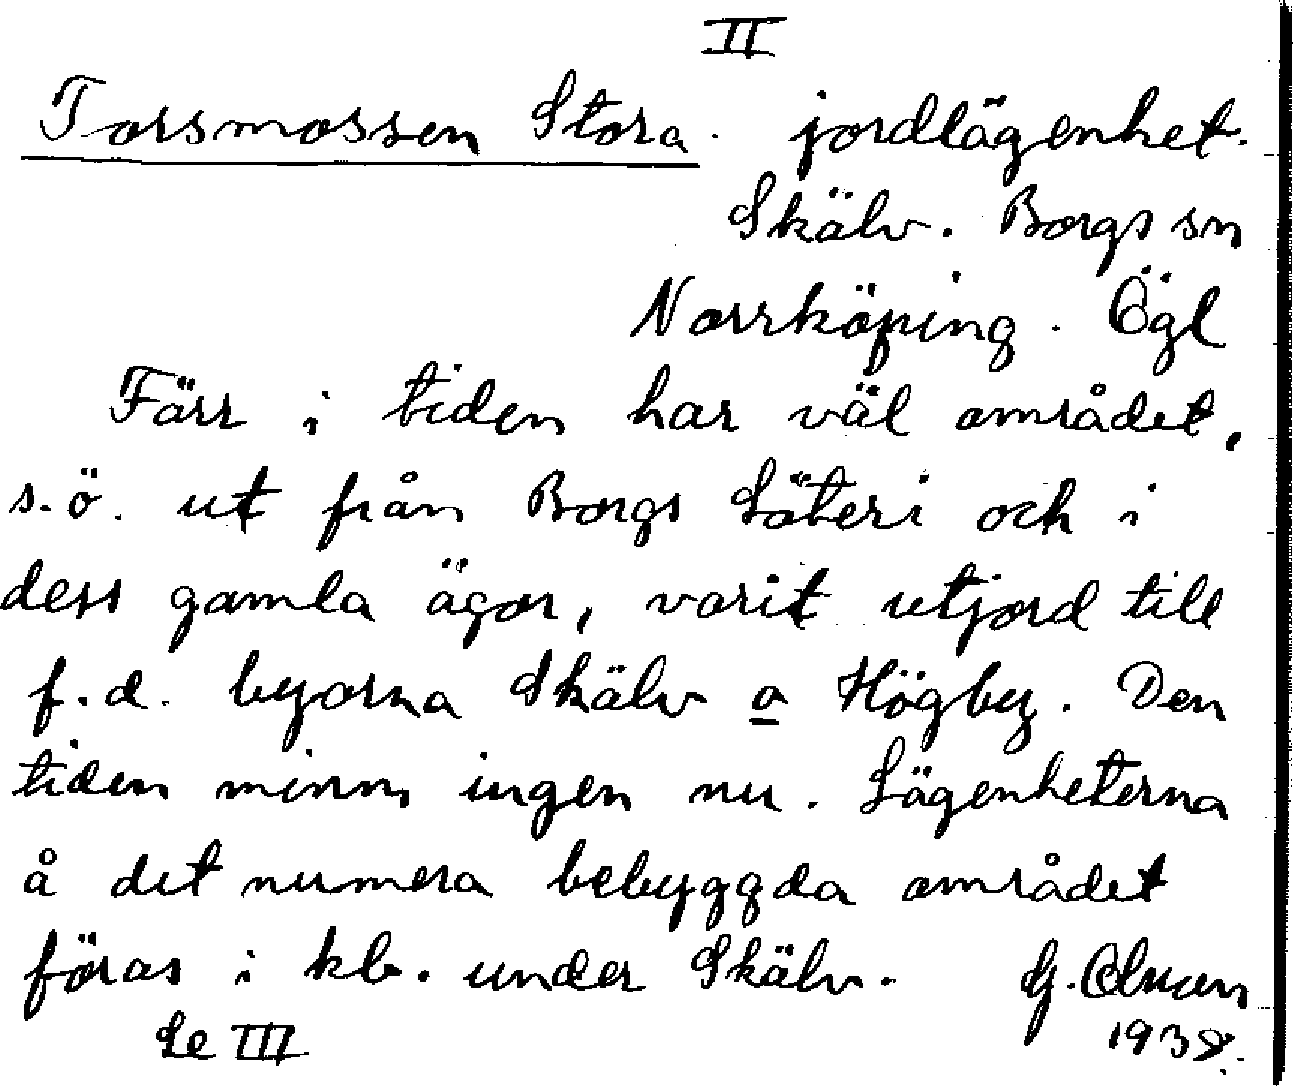 II
Torsmossen Stora. jordlägenhet.
Skälv. Borgs sn
Norrköping. Ögl
Förr i tiden har väl området,
s.ö. ut från Borgs Säteri och i
dess gamla ägor, varit utjord till
f.d. byarna Skälv o Högby. Den
tiden minns ingen nu. Lägenheterna
å det numera bebyggda området
föras i kb. under Skälv. G.
Se III 193